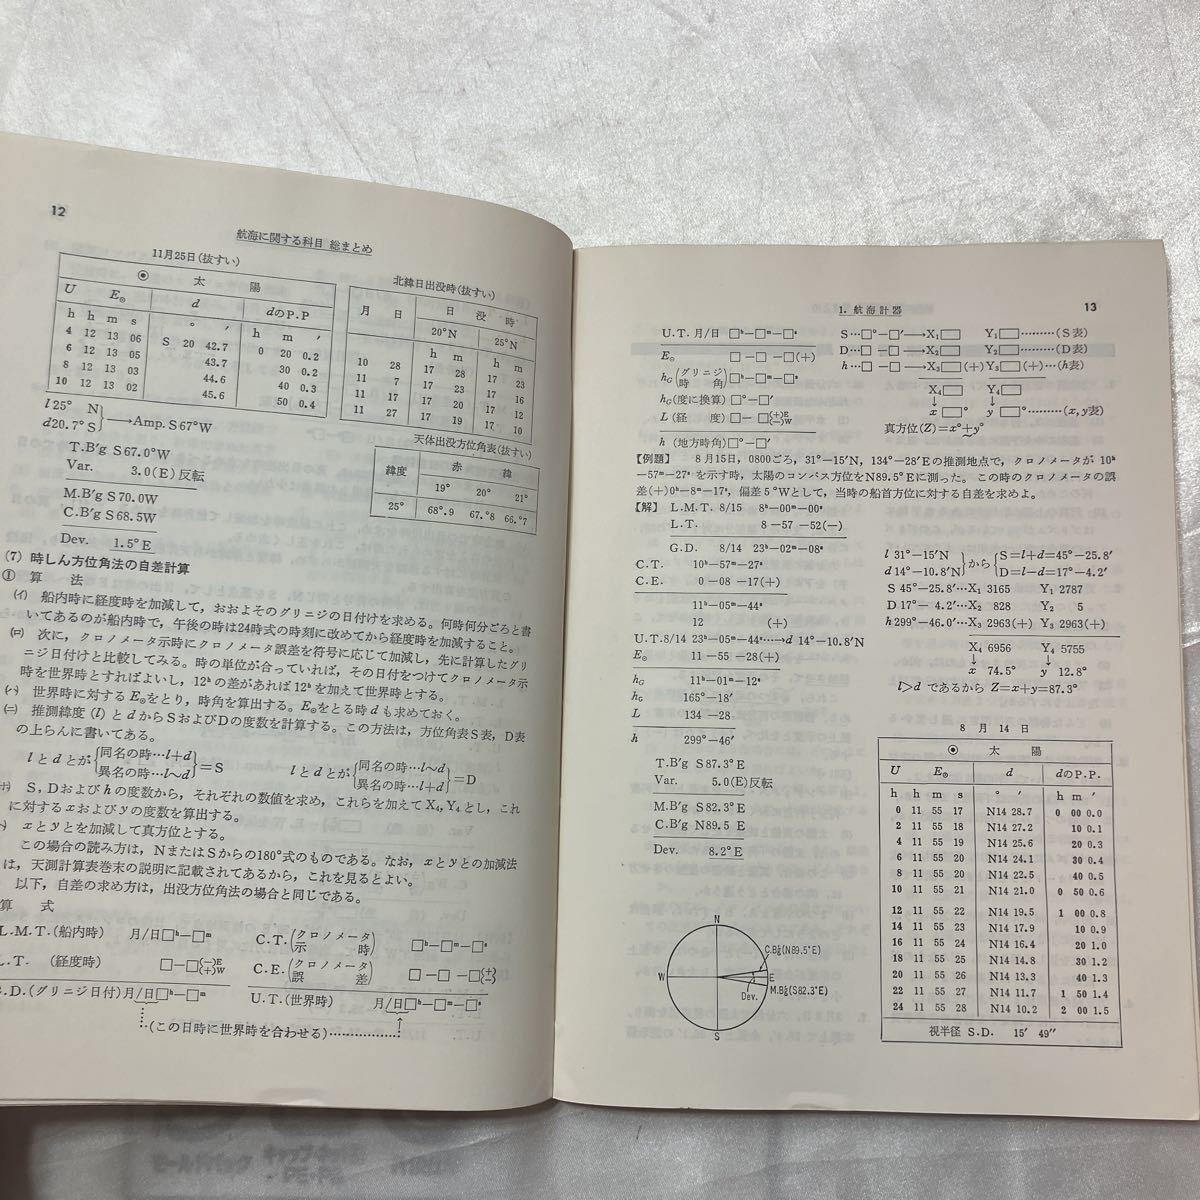 12
航海に関する科目 総まとめ
11月25日(抜すい)
☉ 太 陽
U E☉ d dのP.P
h h m s ° ′ h m ′
4 12 13 06 S 20 42.7 0 20 0.2
6 12 13 05 43.7 30 0.2
8 12 13 03 44.6 40 0.3
10 12 13 02 45.6 50 0.4
北緯日出没時(抜すい)
月 日 日 没 時
20°N 25°N
h m h m
10 28 17 28 17 23
11 7 17 23 17 16
11 17 17 20 17 12
11 27 17 19 17 10
l 25° N
d20.7° S}→Amp. S67°W
T.B'g S67.0°W
Var. 3.0(E)反転
M.B'g S70.0W
C.B'g S68.5W
Dev. 1.5°E
天体出没方位角表(抜すい)
緯度 赤 緯
19° 20° 21°
25° 68°.9 67.°8 66.°7
(7) 時しん方位角法の自差計算
① 算 法
(イ) 船内時に経度時を加減して，おおよそのグリニジの日付けを求める。何時何分ごろと書
いてあるのが船内時で，午後の時は24時式の時刻に改めてから経度時を加減すること。
(ロ) 次に，クロノメータ示時にクロノメータ誤差を符号に応じて加減し，先に計算したグリ
ニジ日付けと比較してみる。時の単位が合っていれば，その日付をつけてクロノメータ示
時を世界時とすればよいし，12ʰの差があれば12ʰを加えて世界時とする。
(ハ) 世界時に対するE☉をとり，時角を算出する。E☉をとる時dも求めておく。
(ニ) 推測緯度(l)とdからSおよびDの度数を計算する。この方法は，方位角表S表，D表
の上らんに書いてある。
lとdとが{同名の時…l+d 異名の時…l～d}=S lとdとが{同名の時…l～d 異名の時…l+d}=D
S，Dおよびhの度数から，それぞれの数値を求め，これらを加えてX₄，Y₄とし，これ
に対するxおよびyの度数を算出する。
xとyとを加減して真方位とする。
この場合の読み方は，NまたはSからの180°式のものである。なお，xとyとの加減法
は，天測計算表巻末の説明に記載されてあるから，これを見るとよい。
以下，自差の求め方は，出没方位角法の場合と同じである。
算 式
L.M.T.(船内時) 月/日□ʰ－□ᵐ C.T.(クロノメータ示 時) □ʰ－□ᵐ－□ˢ
L.T. (経度時) □－□(－)E (+)W C.E.(クロノメータ誤 差) □－□－□(+)(－)
G.D.(グリニジ日付)月/日□ʰ－□ᵐ U.T.(世界時) 月/日□ʰ－□ᵐ－□ˢ
(この日時に世界時を合わせる)
1. 航海計器
13
U.T. 月/日 □ʰ－□ᵐ－□ˢ
E☉ □－□－□(+)
hG(グリニジ時 角)□ʰ－□ᵐ－□ˢ
hG(度に換算) □°－□′
L(経 度) □－□(+)E (－)W
h (地方時角)□°－□′
S…□°－□′→X₁□ Y₁□………(S表)
D…□－□→X₂□ Y₂□………(D表)
h…□－□→X₃□(+)Y₃□(+)…(h表)
X₄□ Y₄□
↓ ↓
x□° y□°………(x, y表)
真方位(Z)=x°～y°
【例題】 8月15日，0800ごろ，31°－15′N，134°－28′Eの推測地点で，クロノメータが10ʰ
－57ᵐ－27ˢを示す時，太陽のコンパス方位をN89.5°Eに測った。この時のクロノメータの誤
差(+)0ʰ－8ᵐ－17ˢ，偏差5°Wとして，当時の船首方位に対する自差を求めよ。
【解】 L.M.T. 8/15 8ʰ－00ᵐ－00ˢ
L.T. 8－57－52(－)
G.D. 8/14 23ʰ－02ᵐ－08ˢ
C.T. 10ʰ－57ᵐ－27ˢ
C.E. 0－08－17(+)
11ʰ－05ᵐ－44ˢ
12 (+)
U.T.8/14 23ʰ－05ᵐ－44ˢ…→d 14°－10.8′N
E☉ 11－55－28(+)
hG 11ʰ－01ᵐ－12ˢ
hG 165°－18′
L 134－28
h 299°－46′
T.B'g S87.3°E
Var. 5.0(E)反転
M.B'g S82.3°E
C.B'g N89.5 E
Dev. 8.2°E
l 31°－15′N
d 14°－10.8′N}から{S=l+d=45°－25.8′
D=l－d=17°－4.2′
S 45°－25.8′…X₁ 3165 Y₁ 2787
D 17°－ 4.2′…X₂ 828 Y₂ 5
h299°－46.0′…X₃ 2963(+) Y₃ 2963(+)
X₄ 6956 Y₄ 5755
↓ ↓
x 74.5° y 12.8°
l>d であるから Z=x+y=87.3°
8 月 14 日
☉ 太 陽
U E☉ d dのP.P.
h h m s ° ′ h m ′
0 11 55 17 N14 28.7 0 00 0.0
2 11 55 18 N14 27.2 10 0.1
4 11 55 19 N14 25.6 20 0.3
6 11 55 20 N14 24.1 30 0.4
8 11 55 20 N14 22.5 40 0.5
10 11 55 21 N14 21.0 0 50 0.6
12 11 55 22 N14 19.5 1 00 0.8
14 11 55 23 N14 17.9 10 0.9
16 11 55 24 N14 16.4 20 1.0
18 11 55 25 N14 14.8 30 1.2
20 11 55 26 N14 13.3 40 1.3
22 11 55 27 N14 11.7 1 50 1.4
24 11 55 28 N14 10.2 2 00 1.5
視半径 S.D. 15′ 49″
N
C.B'g(N89.5°E)
W E
M.B'g(S82.3°E)
Dev.
S